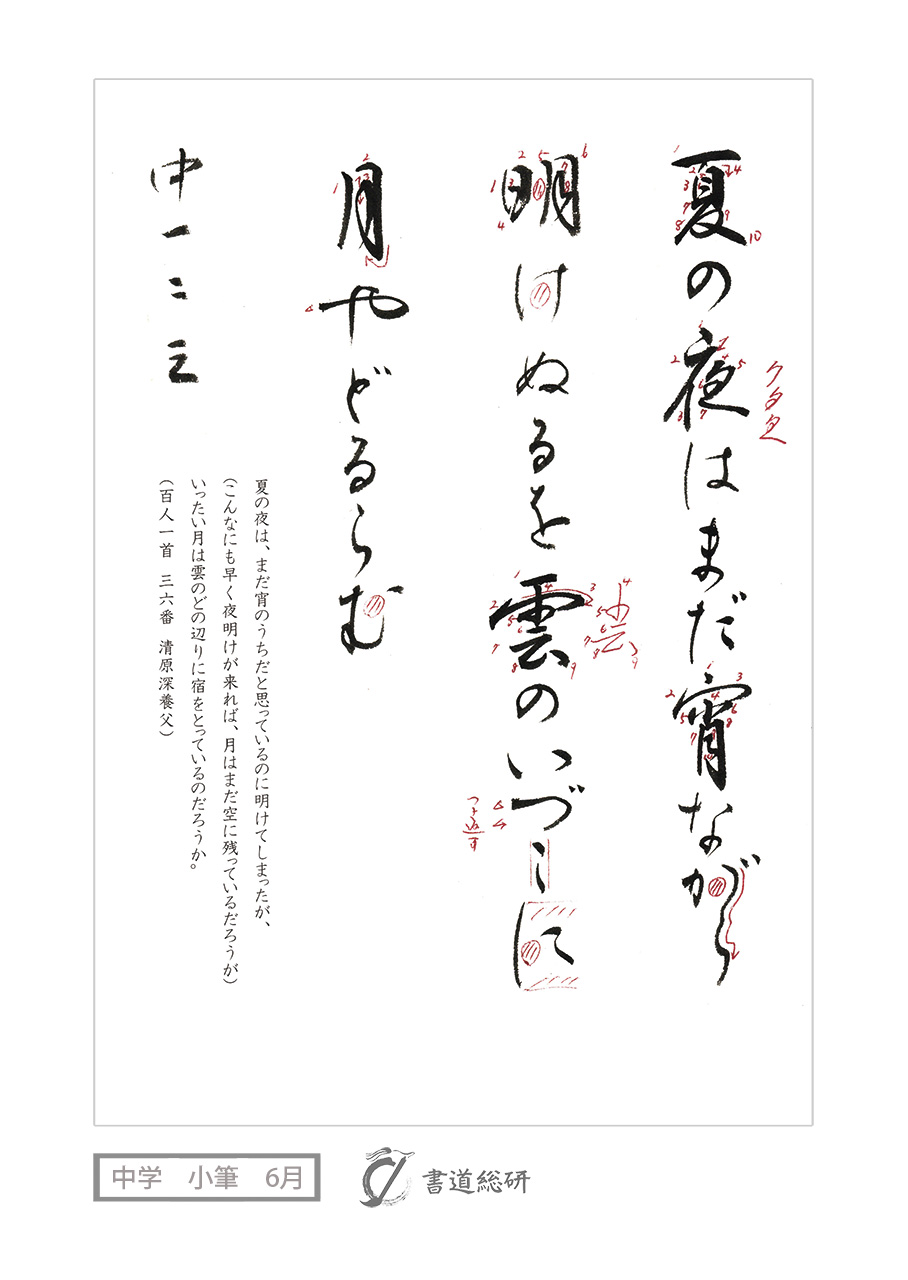 夏の夜はまだ宵ながら
明けぬるを雲のいづこに
月やどるらむ
中一二三
クタ夕
つよ返す
夏の夜は、まだ宵のうちだと思っているのに明けてしまったが、
（こんなにも早く夜明けが来れば、月はまだ空に残っているだろうが）
いったい月は雲のどの辺りに宿をとっているのだろうか。
（百人一首 三六番 清原深養父）
中学 小筆 6月
書道総研